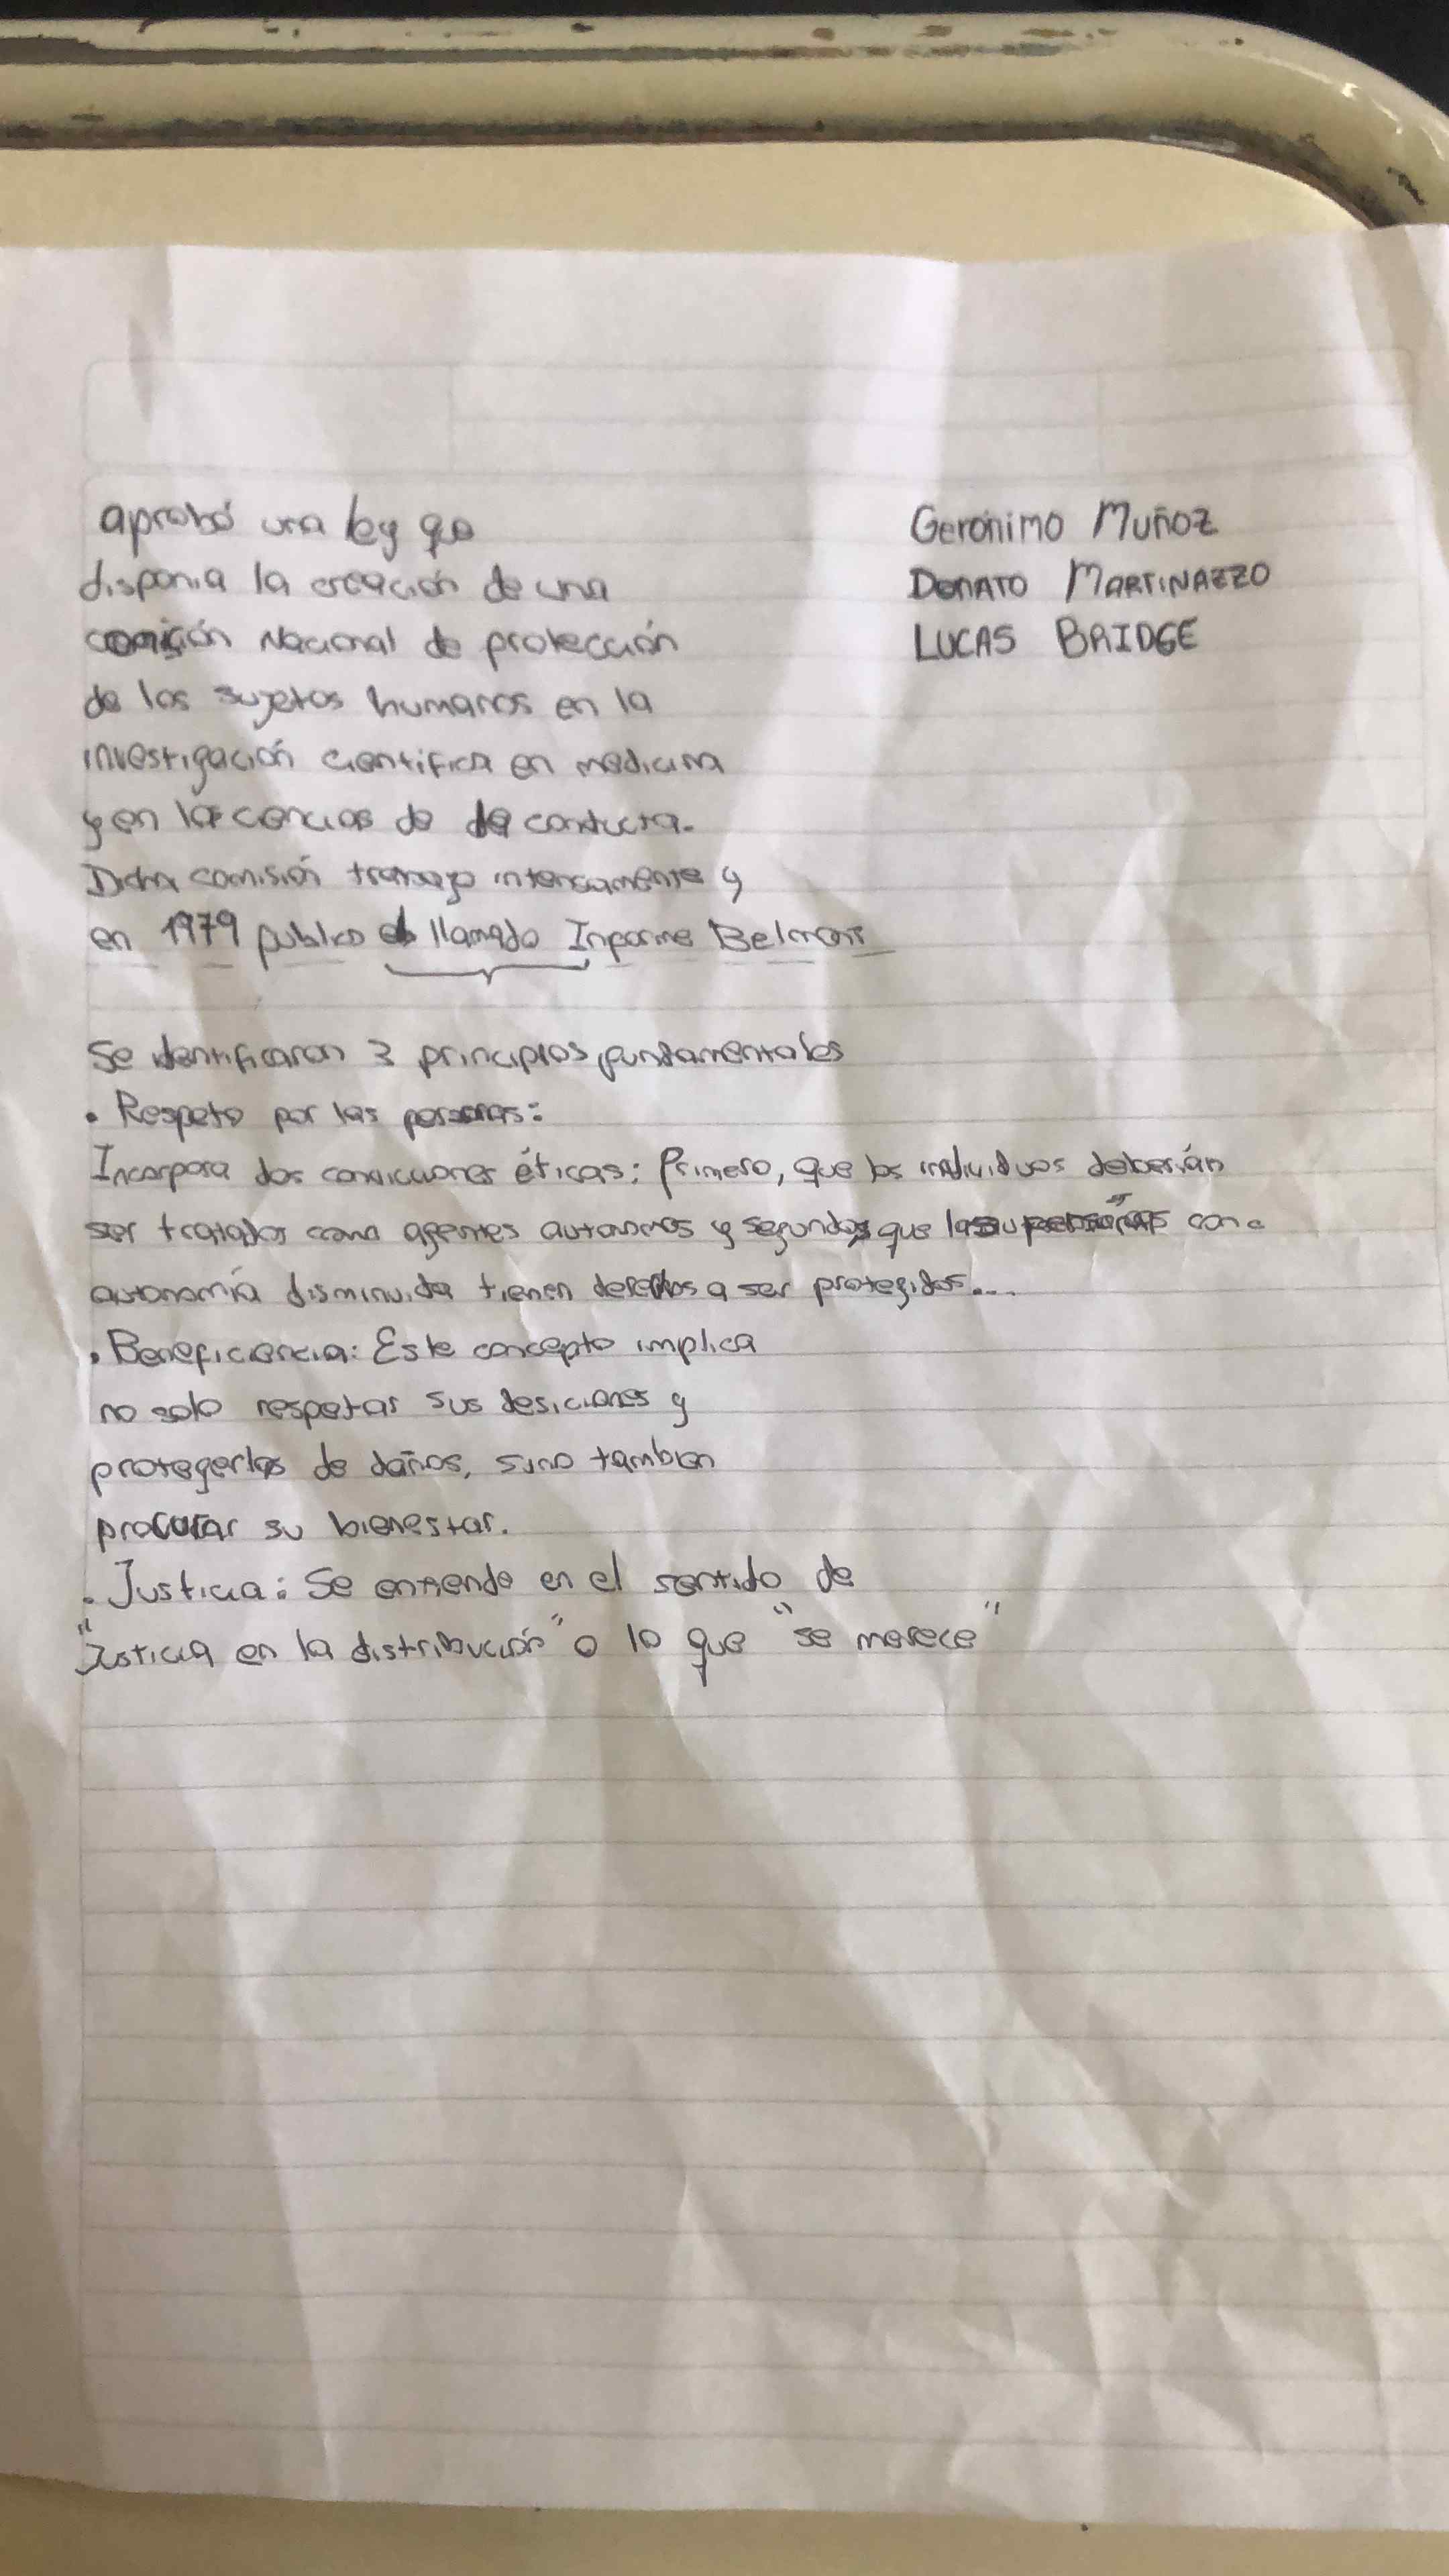 aprobó una ley que
disponia la creación de una
comisión Nacional de protección
de los sujetos humanos en la
investigación cientifica en medicina
y en las ciencias de la conducta.
Dicha comisión trabajo intensamente y
en 1979 publico el llamado Informe Belmont
Geronimo Muñoz
DONATO MARTINAZZO
LUCAS BRIDGE
Se identificaron 3 principios fundamentales
• Respeto por las personas:
Incorpora dos convicciones éticas: Primero, que los individuos deberían
ser tratados como agentes autonomos y segundo, que las personas con
autonomía disminuida tienen derechos a ser protegidos...
• Beneficiencia: Este concepto implica
no solo respetar sus desiciones y
protegerlos de daños, sino tambien
procurar su bienestar.
• Justicia: Se entiende en el sentido de
"Justicia en la distribución" o lo que "se merece"